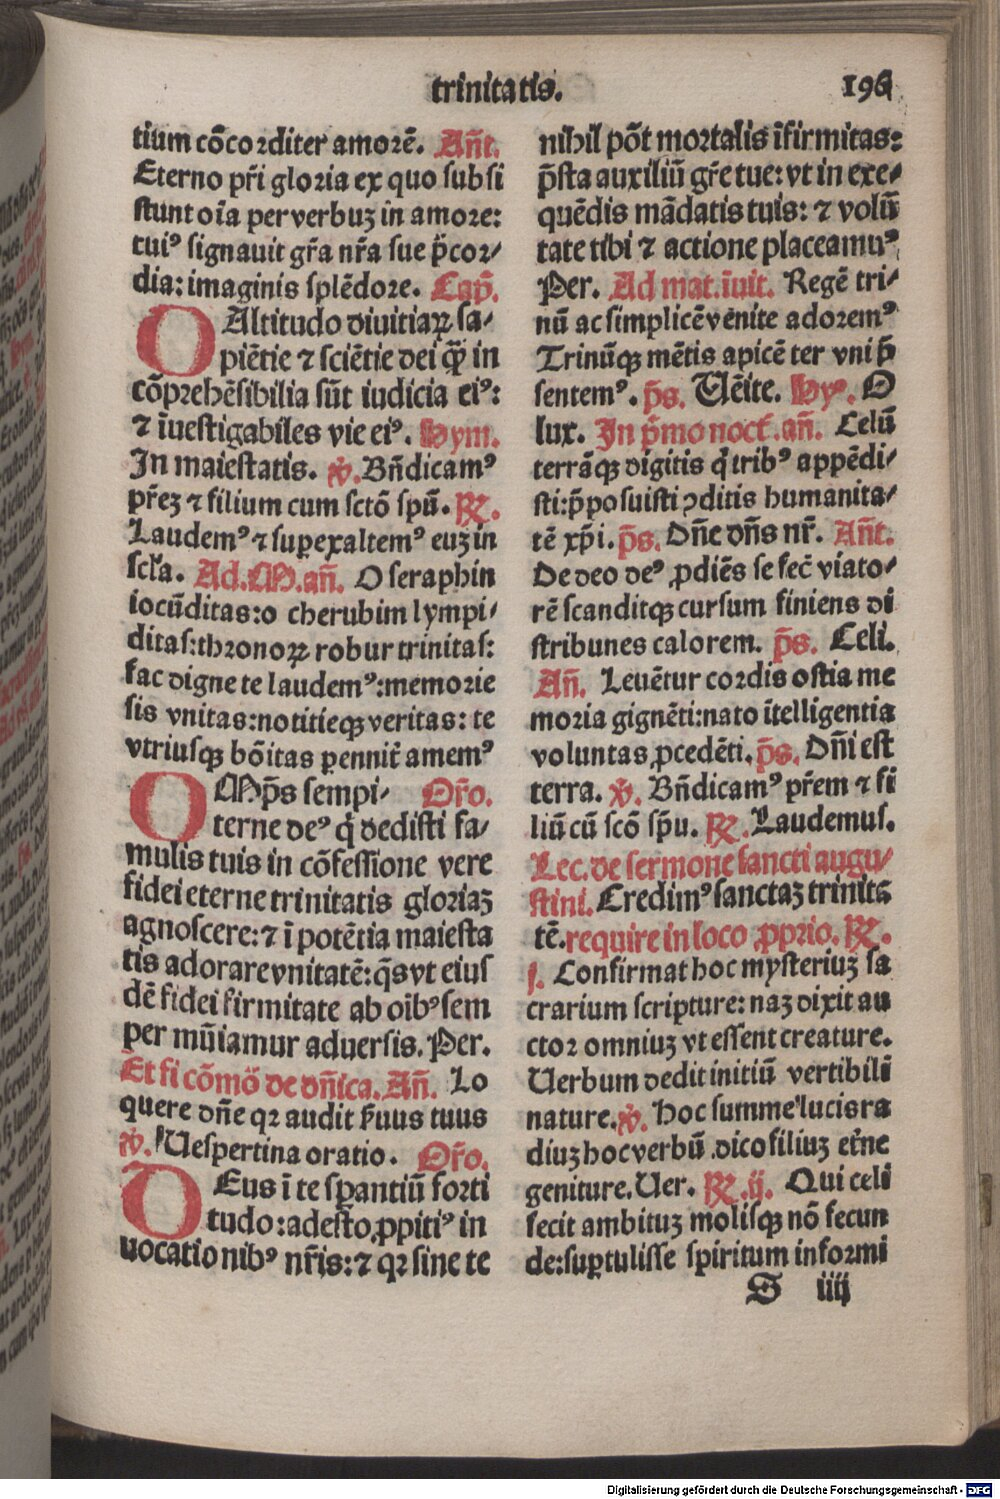 trinitatis.
196
tium cõcorditer amorẽ. Añt.
Eterno pr̃i gloria ex quo subsi
stunt oĩa per verbuʒ in amore:
tuiꝰ signauit gr̃a nr̃a sue p̃cor⸗
dia: imaginis splẽdore. Cap̃.
O Altitudo diuitiaꝝ sa⸗
piẽtie ⁊ sciẽtie dei q̃ꝫ in
cõprehẽsibilia sũt iudicia eiꝰ:
⁊ ĩuestigabiles vie eiꝰ. Hym.
In maiestatis. ℣. Bñdicamꝰ
pr̃eʒ ⁊ filium cum sctõ spũ. ℟.
Laudemꝰ ⁊ suꝑexaltemꝰ euʒ in
scl̃a. Ad. M. añ. O seraphin
iocũditas: o cherubim lympi⸗
ditas: thronoꝝ robur trinitas:
fac digne te laudemꝰ: memorie
sis vnitas: notitieqꝫ veritas: te
vtriusqꝫ bõitas ꝑennit̃ amemꝰ
OMp̃s sempi⸗ Or̃o.
terne deꝰ q̃ dedisti fa⸗
mulis tuis in cõfessione vere
fidei eterne trinitatis gloriaʒ
agnoscere: ⁊ ĩ potẽtia maiesta
tis adorare vnitatẽ: q̃s vt eius
dẽ fidei firmitate ab oĩbꝰ sem
per mũiamur aduersis. Per.
Et fi cõmõ de dñica. Añ. Lo
quere dñe qꝛ audit ẜuus tuus
℣. Uespertina oratio. Or̃o.
DEus ĩ te sꝑantiũ forti
tudo: adesto ꝓpitiꝰ in
uocationibꝰ nr̃is: ⁊ qꝛ sine te
nihil põt mortalis ĩfirmitas:
p̃sta auxiliũ gr̃e tue: vt in exe⸗
quẽdis mãdatis tuis: ⁊ volũ
tate tibi ⁊ actione placeamuꝰ
Per. Ad mat. ĩuit. Regẽ tri⸗
nũ ac simplicẽ venite adoremꝰ
Trinũqꝫ mẽtis apicẽ ter vni p̃
sentemꝰ. p̃s. Uẽite. Hyꝰ. O
lux. In p̃mo noct̃. añ. Celũ
terrãqꝫ digitis q̃ tribꝰ appẽdi⸗
sti: p̃posuisti ↄditis humanita⸗
tẽ xp̃i. p̃s. Dñe dñs nr̃. Añt.
De deo deꝰ ꝓdiẽs se fec̃ viato⸗
rẽ scanditqꝫ cursum finiens di
stribunes calorem. p̃s. Celi.
Añ. Leuẽtur cordis ostia me
moria gignẽti: nato ĩtelligentia
voluntas ꝓcedẽti. p̃s. Dñi est
terra. ℣. Bñdicamꝰ pr̃em ⁊ fi
liũ cũ scõ sp̃u. ℟. Laudemus.
Lec. de sermone sancti augu⸗
stini. Credimꝰ sanctaʒ trinita
tẽ. require in loco ꝓprio. ℟.
j. Confirmat hoc mysteriuʒ sa
crarium scripture: naʒ dixit au
ctor omniuʒ vt essent creature.
Uerbum dedit initiũ vertibili
nature. ℣. Hoc summe lucis ra
diuʒ hoc verbũ dico filiuʒ et̃ne
geniture. Uer. ℟. ij. Qui celi
fecit ambituʒ molisqꝫ nõ fecun
de: suꝑtulisse spiritum informi
S iiij
Digitalisierung gefördert durch die Deutsche Forschungsgemeinschaft - DFG